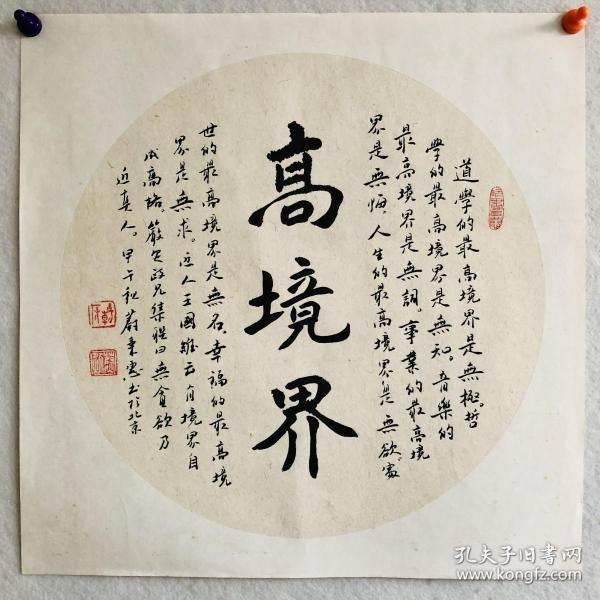 高境界
道學的最高境界是無極。哲
學的最高境界是無知。音樂的
最高境界是無調。事業的最高境
界是無悔。人生的最高境界是無欲。處
世的最高境界是無名。幸福的最高境
界是無求。近人王國維云有境界自
成高格。嚴
兄集 曰無貪欲乃
近真人。甲午秋蔚 書於北京
孔夫子旧书网
www.kongfz.com